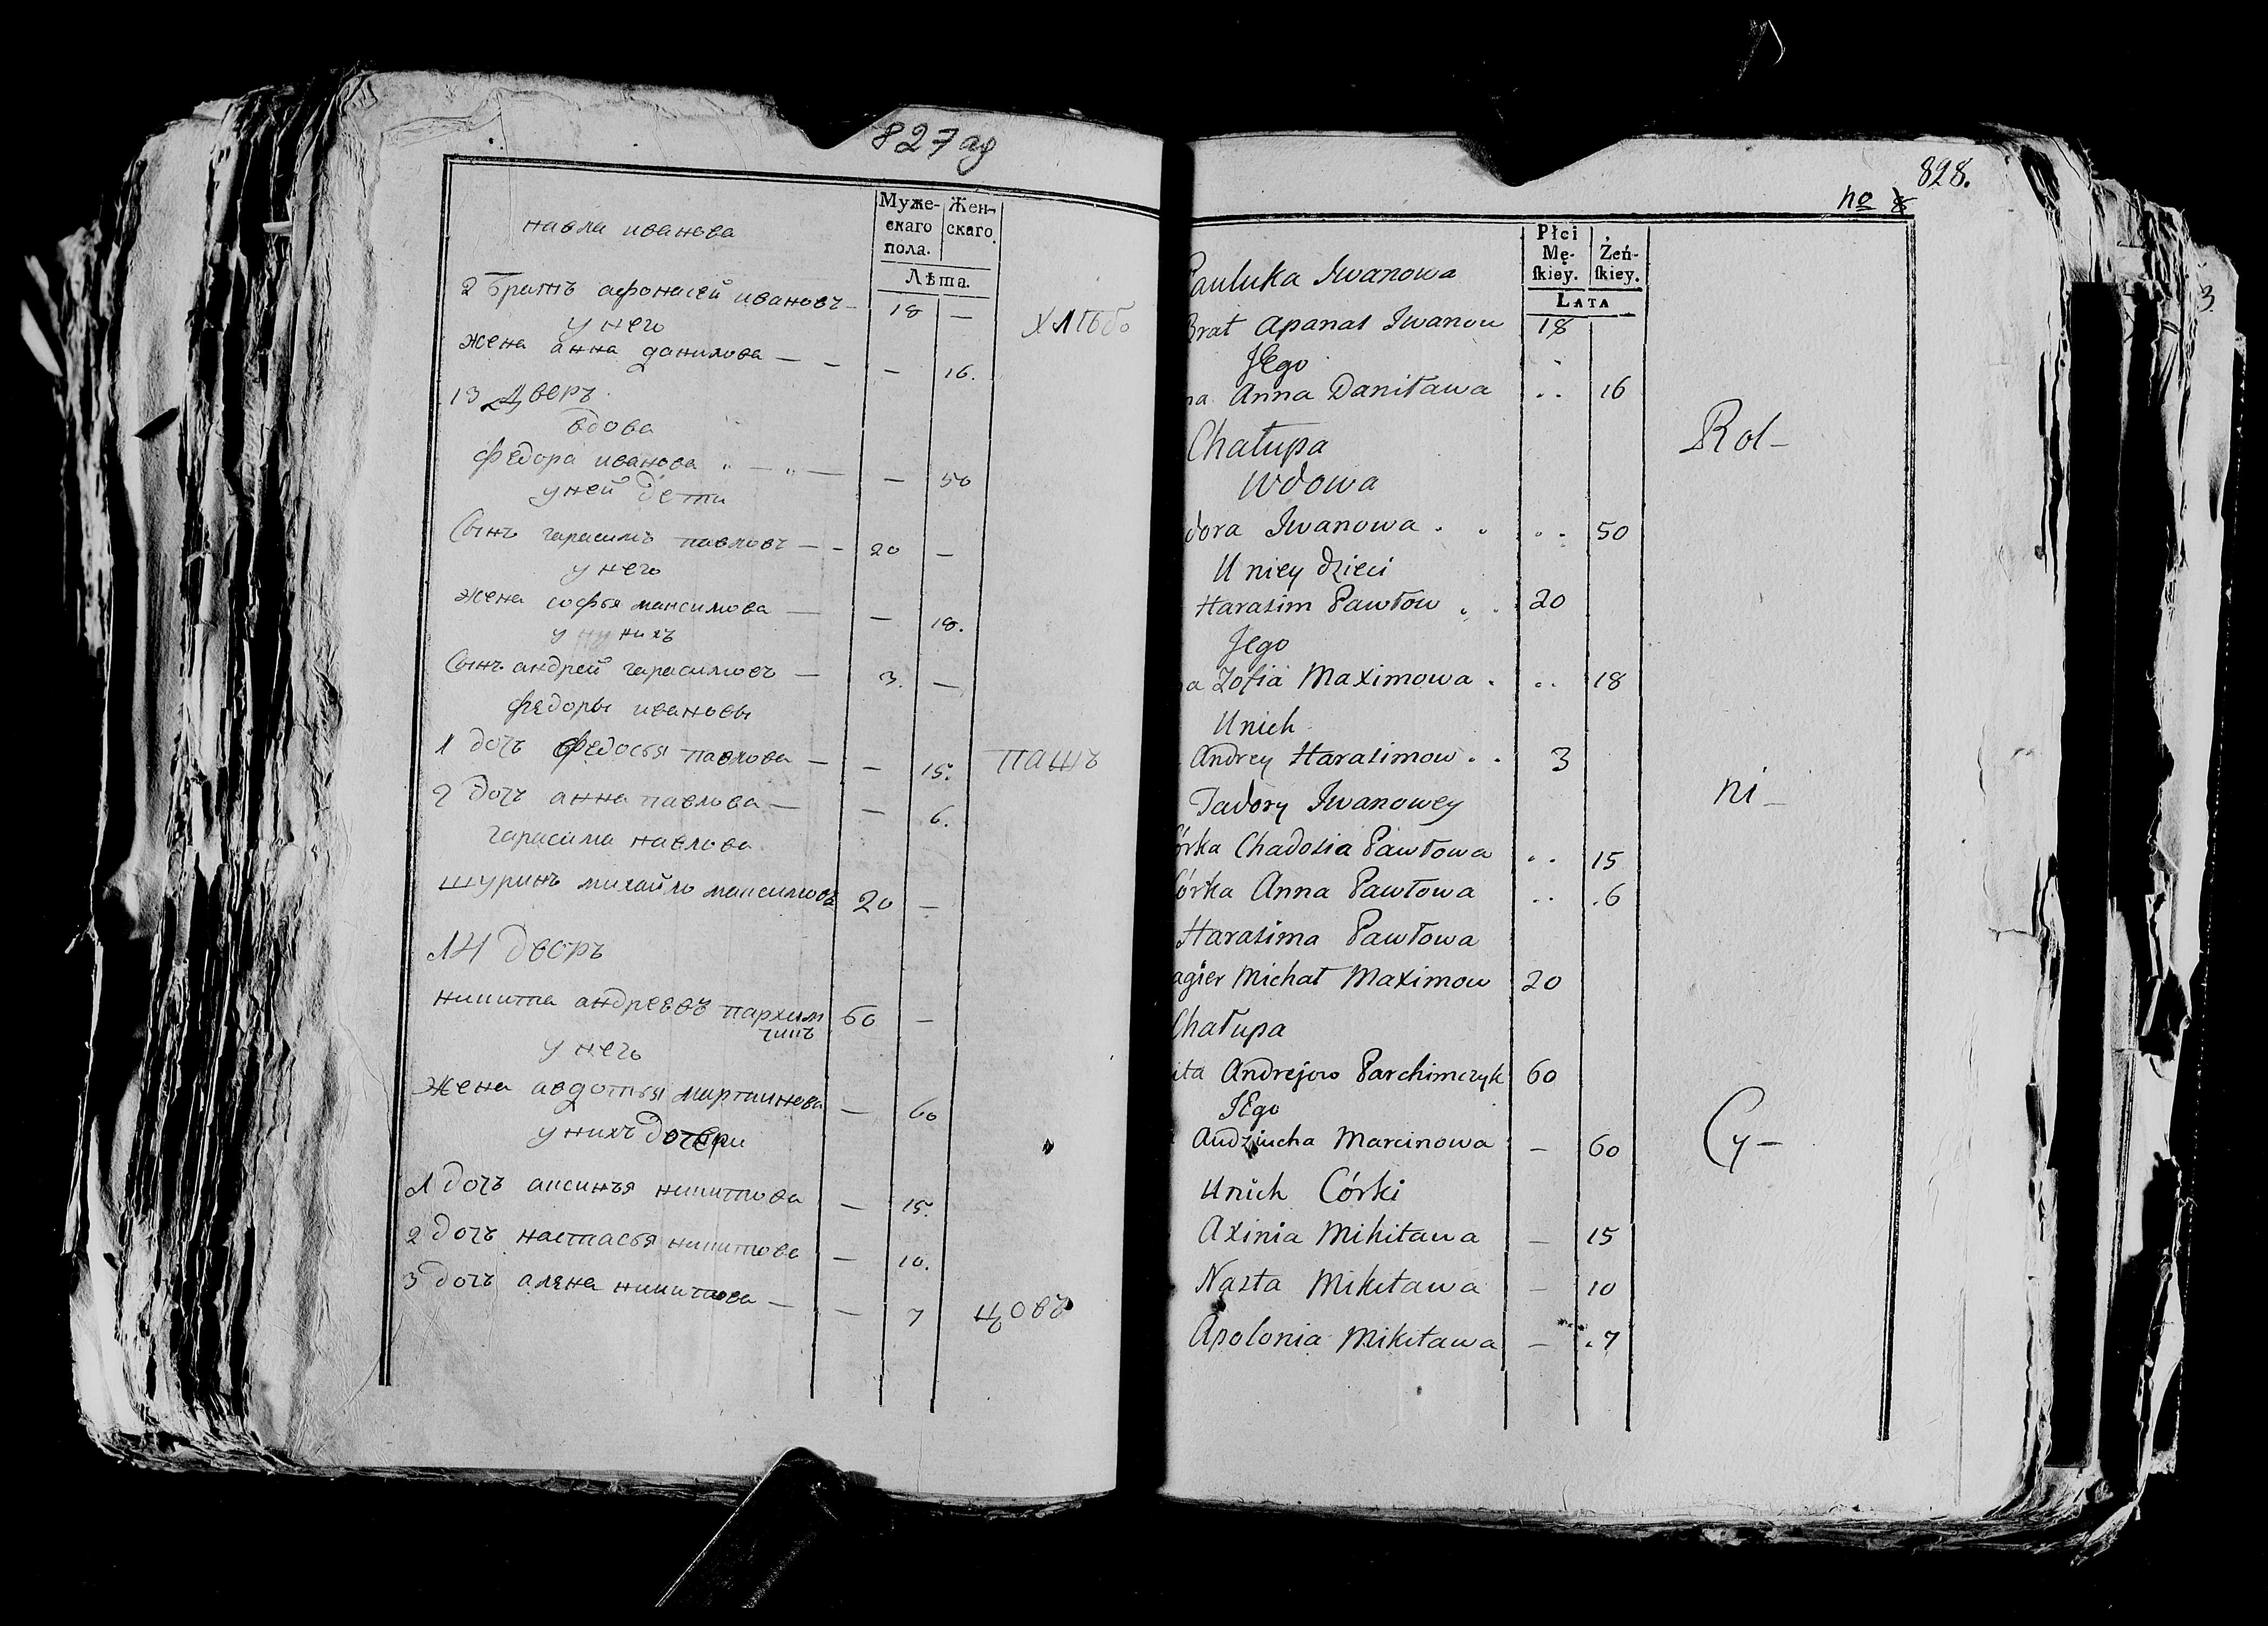 827
Муже-
скаго
пола.
Жен-
скаго.
Лѣта.
павла иванова
2 братъ афонасей ивановъ — 18 —
у него
жена анна данилова — — — 16.
хлѣбо
13 дворъ
вдова
федора иванова — — — 50
у ней дети
сынъ гарасимъ павловъ — — 20 —
у него
жена софья максимова — — 18.
у нихъ
сынъ андрей гарасимовъ — 3. —
федоры ивановы
1 дочь федосья павлова — — 15.
пашъ
2 дочь анна павлова — — 6.
гарасима павлова
шуринъ михайло максимовъ 20 —
14 дворъ
никита андреевъ пархим
чикъ 60 —
у него
жена авдотья мартинова — 60
у нихъ дочери
1 дочь аксинья никитова — 15.
2 дочь настасья никитова — 10.
3 дочь алена никитова — — 7
цовъ
828.
no 8
Płci
Mę-
skiey.
Żeń-
skiey.
LATA
Pauluka Iwanowa
Brat Apanas Iwanow 18
Jego
na Anna Daniława .. 16
Chałupa
Rol-
Wdowa
dora Iwanowa . . .. 50
U niey dzieci
Harasim Pawłow . . 20
Jego
a Zofia Maximowa . .. 18
Unich
Andrey Harasimow . . 3
ni-
Fadory Iwanowey
órka Chadosia Pawłowa .. 15
Córka Anna Pawłowa .. .6
Harasima Pawłowa
agier Michał Maximow 20
Chałupa
ita Andrejow Parchimczyk 60
Jego
Audziucha Marcinowa — 60
Cy-
Unich Córki
Axinia Mikitawa — 15
Nasta Mikitawa — 10
Apolonia Mikitawa — .7